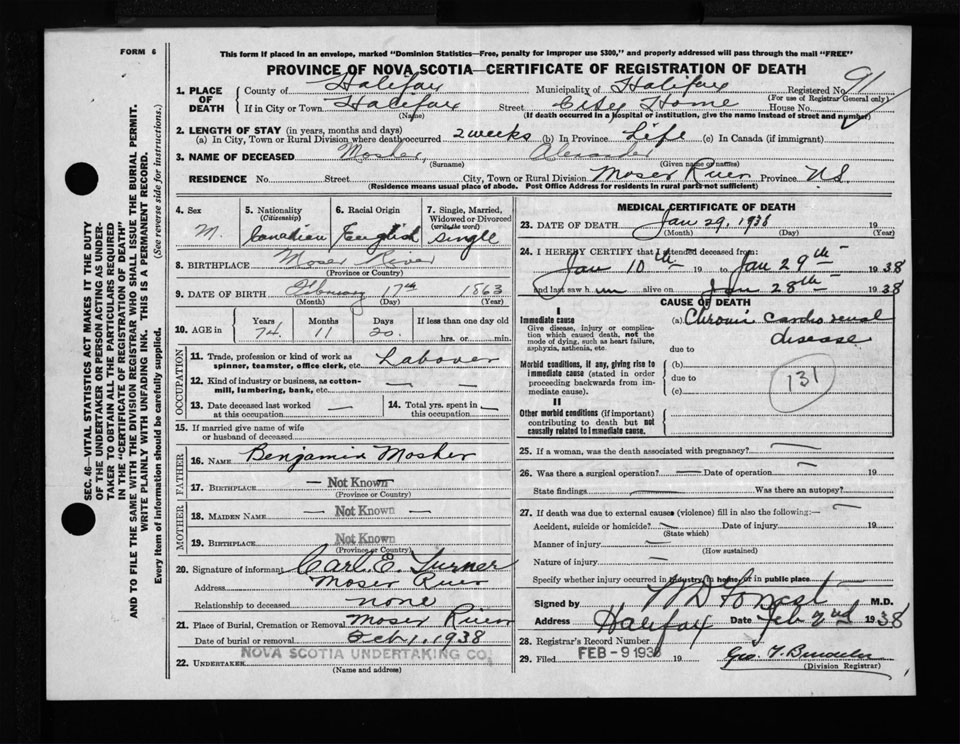 FORM 6
This form if placed in an envelope, marked "Dominion Statistics—Free, penalty for improper use $300," and properly addressed will pass through the mail "FREE"
PROVINCE OF NOVA SCOTIA—CERTIFICATE OF REGISTRATION OF DEATH
SEC. 46—VITAL STATISTICS ACT MAKES IT THE DUTY
OF THE UNDERTAKER OR PERSON ACTING AS UNDER-
TAKER TO OBTAIN ALL THE PARTICULARS REQUIRED
IN THE "CERTIFICATE OF REGISTRATION OF DEATH"
AND TO FILE THE SAME WITH THE DIVISION REGISTRAR WHO SHALL ISSUE THE BURIAL PERMIT.
WRITE PLAINLY WITH UNFADING INK. THIS IS A PERMANENT RECORD.
Every item of information should be carefully supplied. (See reverse side for instructions.)
1. PLACE OF DEATH
County of Halifax Municipality of Halifax Registered No. 91
(For use of Registrar General only)
If in City or Town Halifax Street City Home House No.
(Name) (If death occurred in a hospital or institution, give the name instead of street and number)
2. LENGTH OF STAY (in years, months and days)
(a) In City, Town or Rural Division where death occurred 2 weeks (b) In Province Life (c) In Canada (if immigrant)
3. NAME OF DECEASED Mosher, Alexander
(Surname) (Given name or names)
RESIDENCE No. Street City, Town or Rural Division Moser River Province N.S.
(Residence means usual place of abode. Post Office Address for residents in rural parts not sufficient)
4. Sex M.
5. Nationality (Citizenship) Canadian
6. Racial Origin English
7. Single, Married, Widowed or Divorced (write the word) Single
8. BIRTHPLACE Moser River
(Province or Country)
9. DATE OF BIRTH February 17th 1863
(Month) (Day) (Year)
10. AGE in Years 74 Months 11 Days 20 If less than one day old
hrs. or min.
OCCUPATION
11. Trade, profession or kind of work as spinner, teamster, office clerk, etc. Labourer
12. Kind of industry or business, as cotton-mill, lumbering, bank, etc. — —
13. Date deceased last worked at this occupation — 14. Total yrs. spent in this occupation —
15. If married give name of wife or husband of deceased
FATHER
16. NAME Benjamin Mosher
17. BIRTHPLACE — Not Known —
(Province or Country)
MOTHER
18. MAIDEN NAME — Not Known —
19. BIRTHPLACE Not Known
(Province or Country)
20. Signature of informant Carl. E. Turner
Address Moser River
Relationship to deceased none
21. Place of Burial, Cremation or Removal Moser River
Date of burial or removal Feb. 1, 1938
22. UNDERTAKER NOVA SCOTIA UNDERTAKING CO.
(Name and address)
MEDICAL CERTIFICATE OF DEATH
23. DATE OF DEATH Jan 29, 1938 19
(Month) (Day) (Year)
24. I HEREBY CERTIFY that I attended deceased from:
Jan 10th 19 to Jan 29th 1938
and last saw him alive on Jan 28th 1938
CAUSE OF DEATH
I
Immediate cause
Give disease, injury or complication which caused death, not the mode of dying, such as heart failure, asphyxia, asthenia, etc.
(a) Chronic cardio renal disease
due to
Morbid conditions, if any, giving rise to immediate cause (stated in order proceeding backwards from immediate cause).
(b)
due to
(c)
131
II
Other morbid conditions (if important) contributing to death but not causally related to immediate cause.
25. If a woman, was the death associated with pregnancy? —
26. Was there a surgical operation? — Date of operation — 19
State findings — Was there an autopsy?
27. If death was due to external causes (violence) fill in also the following:—
Accident, suicide or homicide? — Date of injury 19
(State which)
Manner of injury —
(How sustained)
Nature of injury —
Specify whether injury occurred in industry, in home, or in public place —
Signed by W D Forrest M.D.
Address Halifax Date Feb 2nd 1938
28. Registrar's Record Number
29. Filed FEB - 9 1938 19
(Division Registrar)